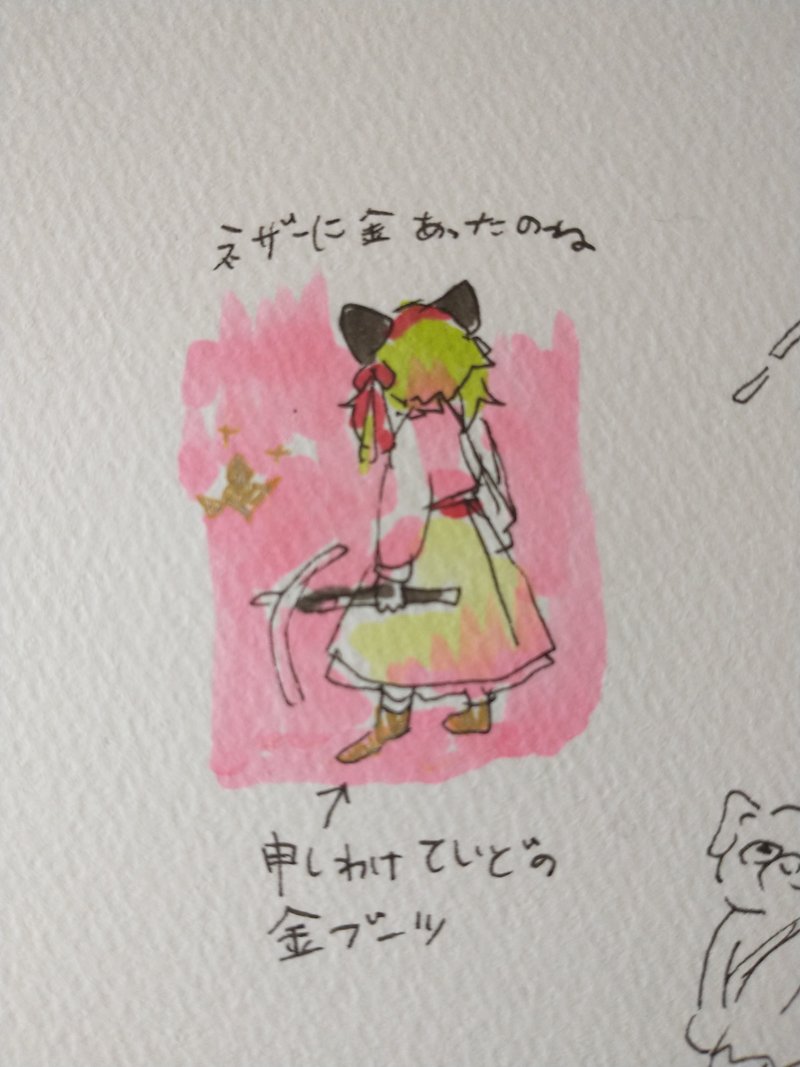 ネザーに金あったのね
申しわけていどの
金ブーツ